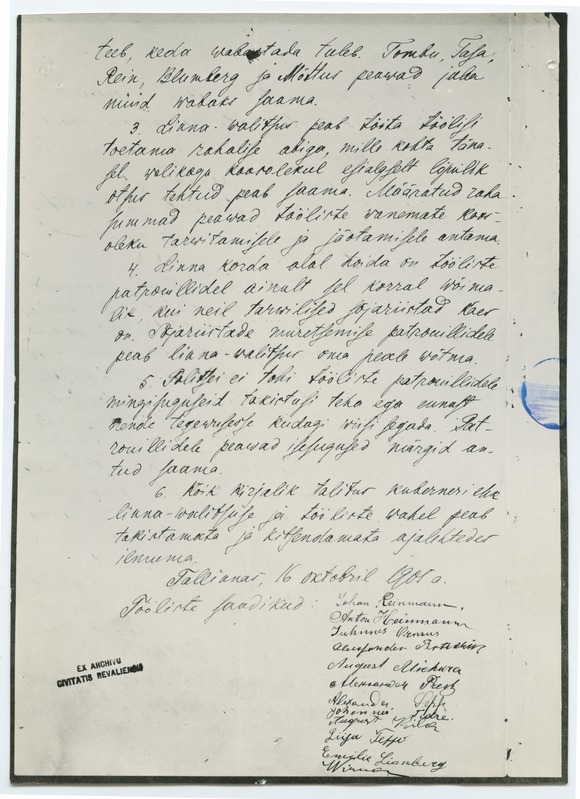 teeb, keda wabastada tuleb. Tombu, Tasa,
Rein, Blumberg ja Mõttus peawad juba
nüüd wabaks saama.
3. Linna-walitsus peab tööta töölisi
toetama rahalise abiga, mille kohta täna-
sel wolikogu koosolekul esialgselt lõpulik
otsus tehtud peab saama. Määratud raha
summad peawad tööliste wanemate koos-
oleku tarwitamisele ja jäotamisele antama.
4. Linna korda alal hoida on tööliste
patrouillidel ainult sel korral wõima-
lik, kui neil tarwilised sõjariistad käes
on. Sõjariistade muretsemise patrouillidele
peab linna-walitsus oma peale wõtma.
5. Politsei ei tohi tööliste patrouillidele
mingisuguseid takistusi teha ega ennast
nende tegewusesse kuidagi wiisi segada. Pat-
rouillidele peawad isesugused märgid an-
tud saama.
6. Kõik kirjalik talitus kuberneri ehk
linna-walitsuse ja tööliste wahel peab
takistamata ja kitsendamata ajalehtedes
ilmuma.
Tallinnas, 16 oktobril 1905 a.
Tööliste saadikud:
Johan Reinmann.
Anton Heinmann
Juhannes
Aleksander
August
Aleksander
Aleksander
Johannes
August
Liisa
Emilie
EX ARCHIVO
CIVITATIS REVALIENSIS